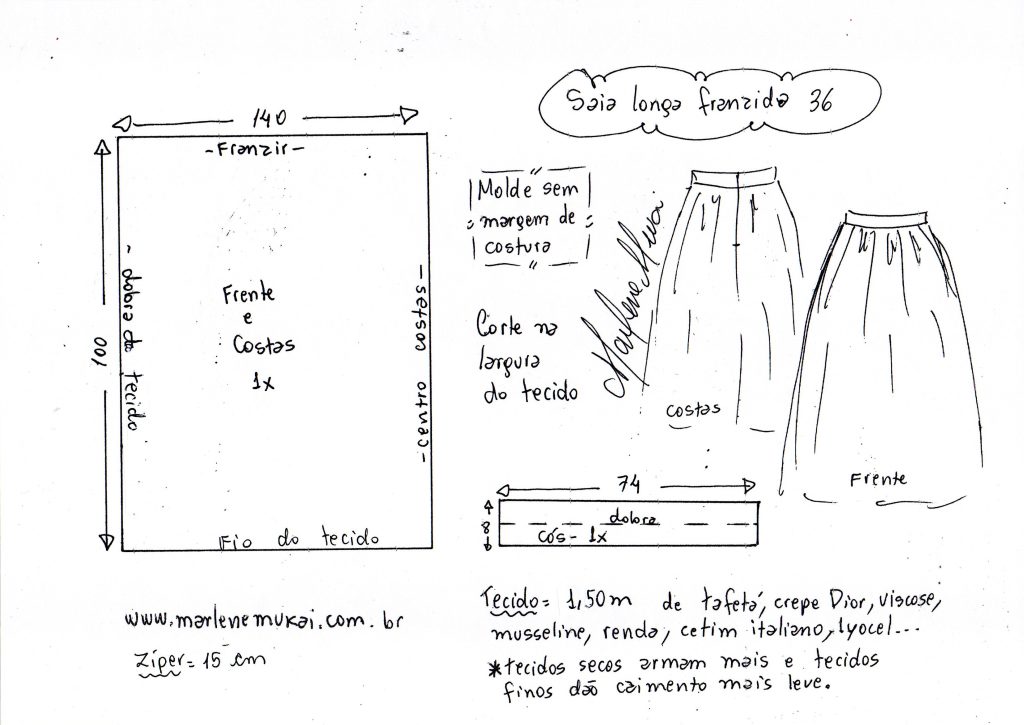 Saia longa franzida 36
140
- Franzir -
100
- dobra do tecido
Frente
e
Costas
1x
- centro costas -
Fio do tecido
Molde sem
margem de
costura
Corte na
largura
do tecido
Marlene Mukai
costas
Frente
74
8
dobra
Cós - 1x
www.marlenemukai.com.br
Zíper = 15 cm
Tecido = 1,50m de tafetá, crepe Dior, viscose,
musseline, renda, cetim italiano, lyocel...
*tecidos secos armam mais e tecidos
finos dão caimento mais leve.